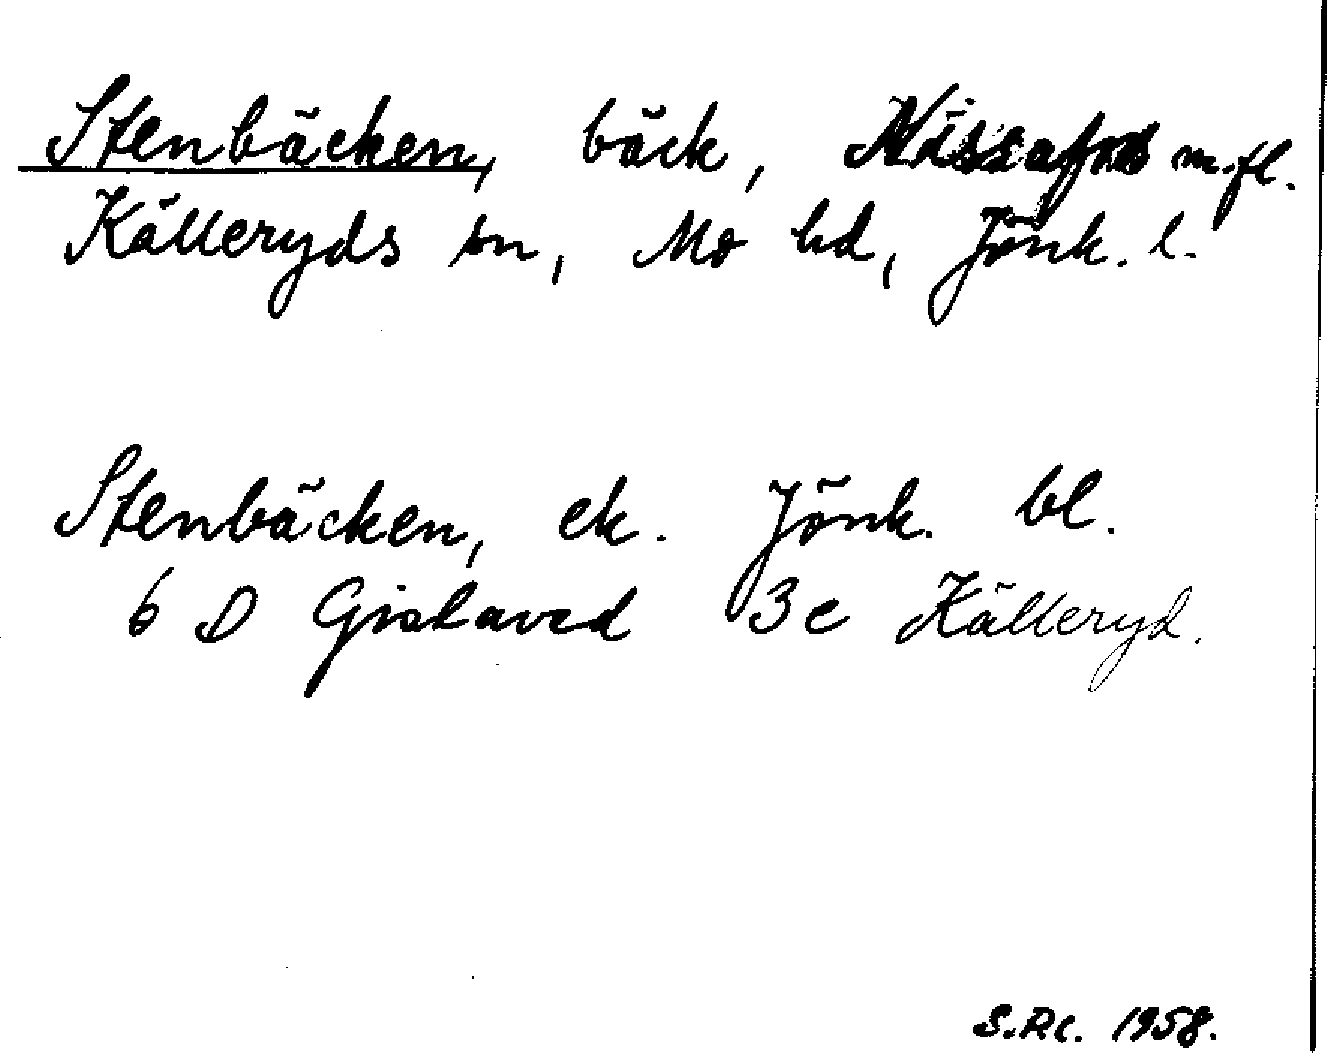 Stenbäcken, bäck, Nissafors m.fl.
Källeryds sn, Mo hd, Jönk. l.
Stenbäcken, ek. Jönk. bl.
6 D Gislaved 3e Källeryd.
1958.